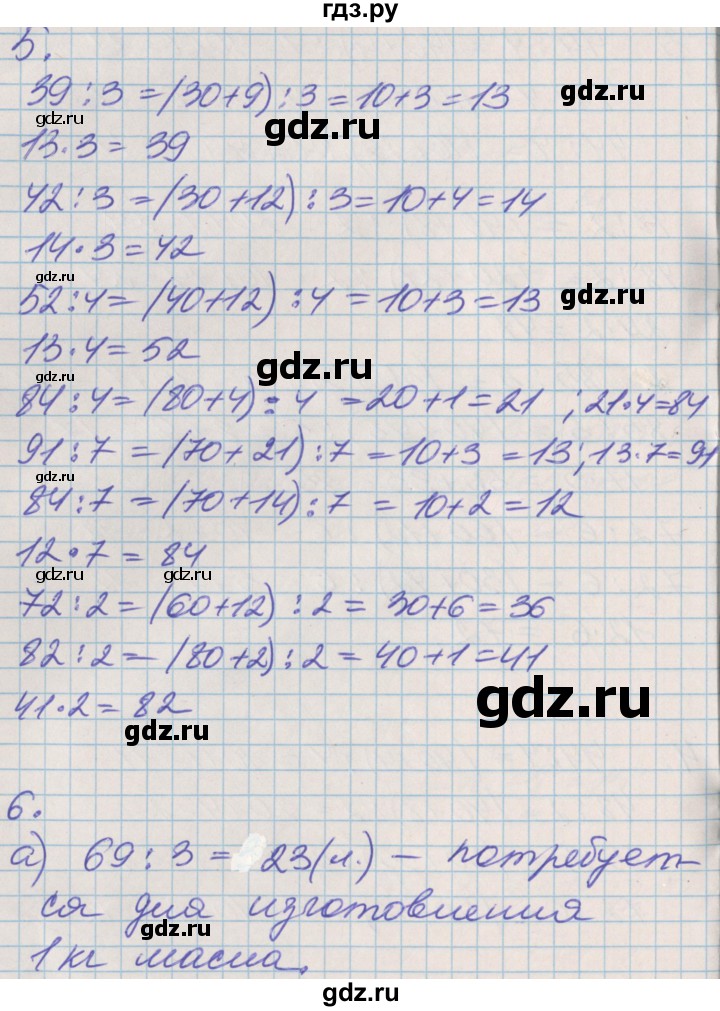 гдз.ру
5.
39 : 3 = (30+9) : 3 = 10+3 = 13
gdz.ru
gdz.ru
gdz.ru
13 · 3 = 39
42 : 3 = (30+12) : 3 = 10+4 = 14
gdz.ru
gdz.ru
14 · 3 = 42
gdz.ru
52 : 4 = (40+12) : 4 = 10+3 = 13
gdz.ru
13 · 4 = 52
gdz.ru
gdz.ru
84 : 4 = (80+4) : 4 = 20+1 = 21 ; 21·4=84
91 : 7 = (70+21) : 7 = 10+3 = 13 ; 13·7=91
gdz.ru
gdz.ru
84 : 7 = (70+14) : 7 = 10+2 = 12
12 · 7 = 84
gdz.ru gdz.ru
72 : 2 = (60+12) : 2 = 30+6 = 36
82 : 2 = (80+2) : 2 = 40+1 = 41
gdz.ru
gdz.ru
41 · 2 = 82
gdz.ru
6.
а) 69 : 3 = 23 (л.) – потребует-
ся для изготовления
gdz.ru
1 кг масла.
gdz.ru